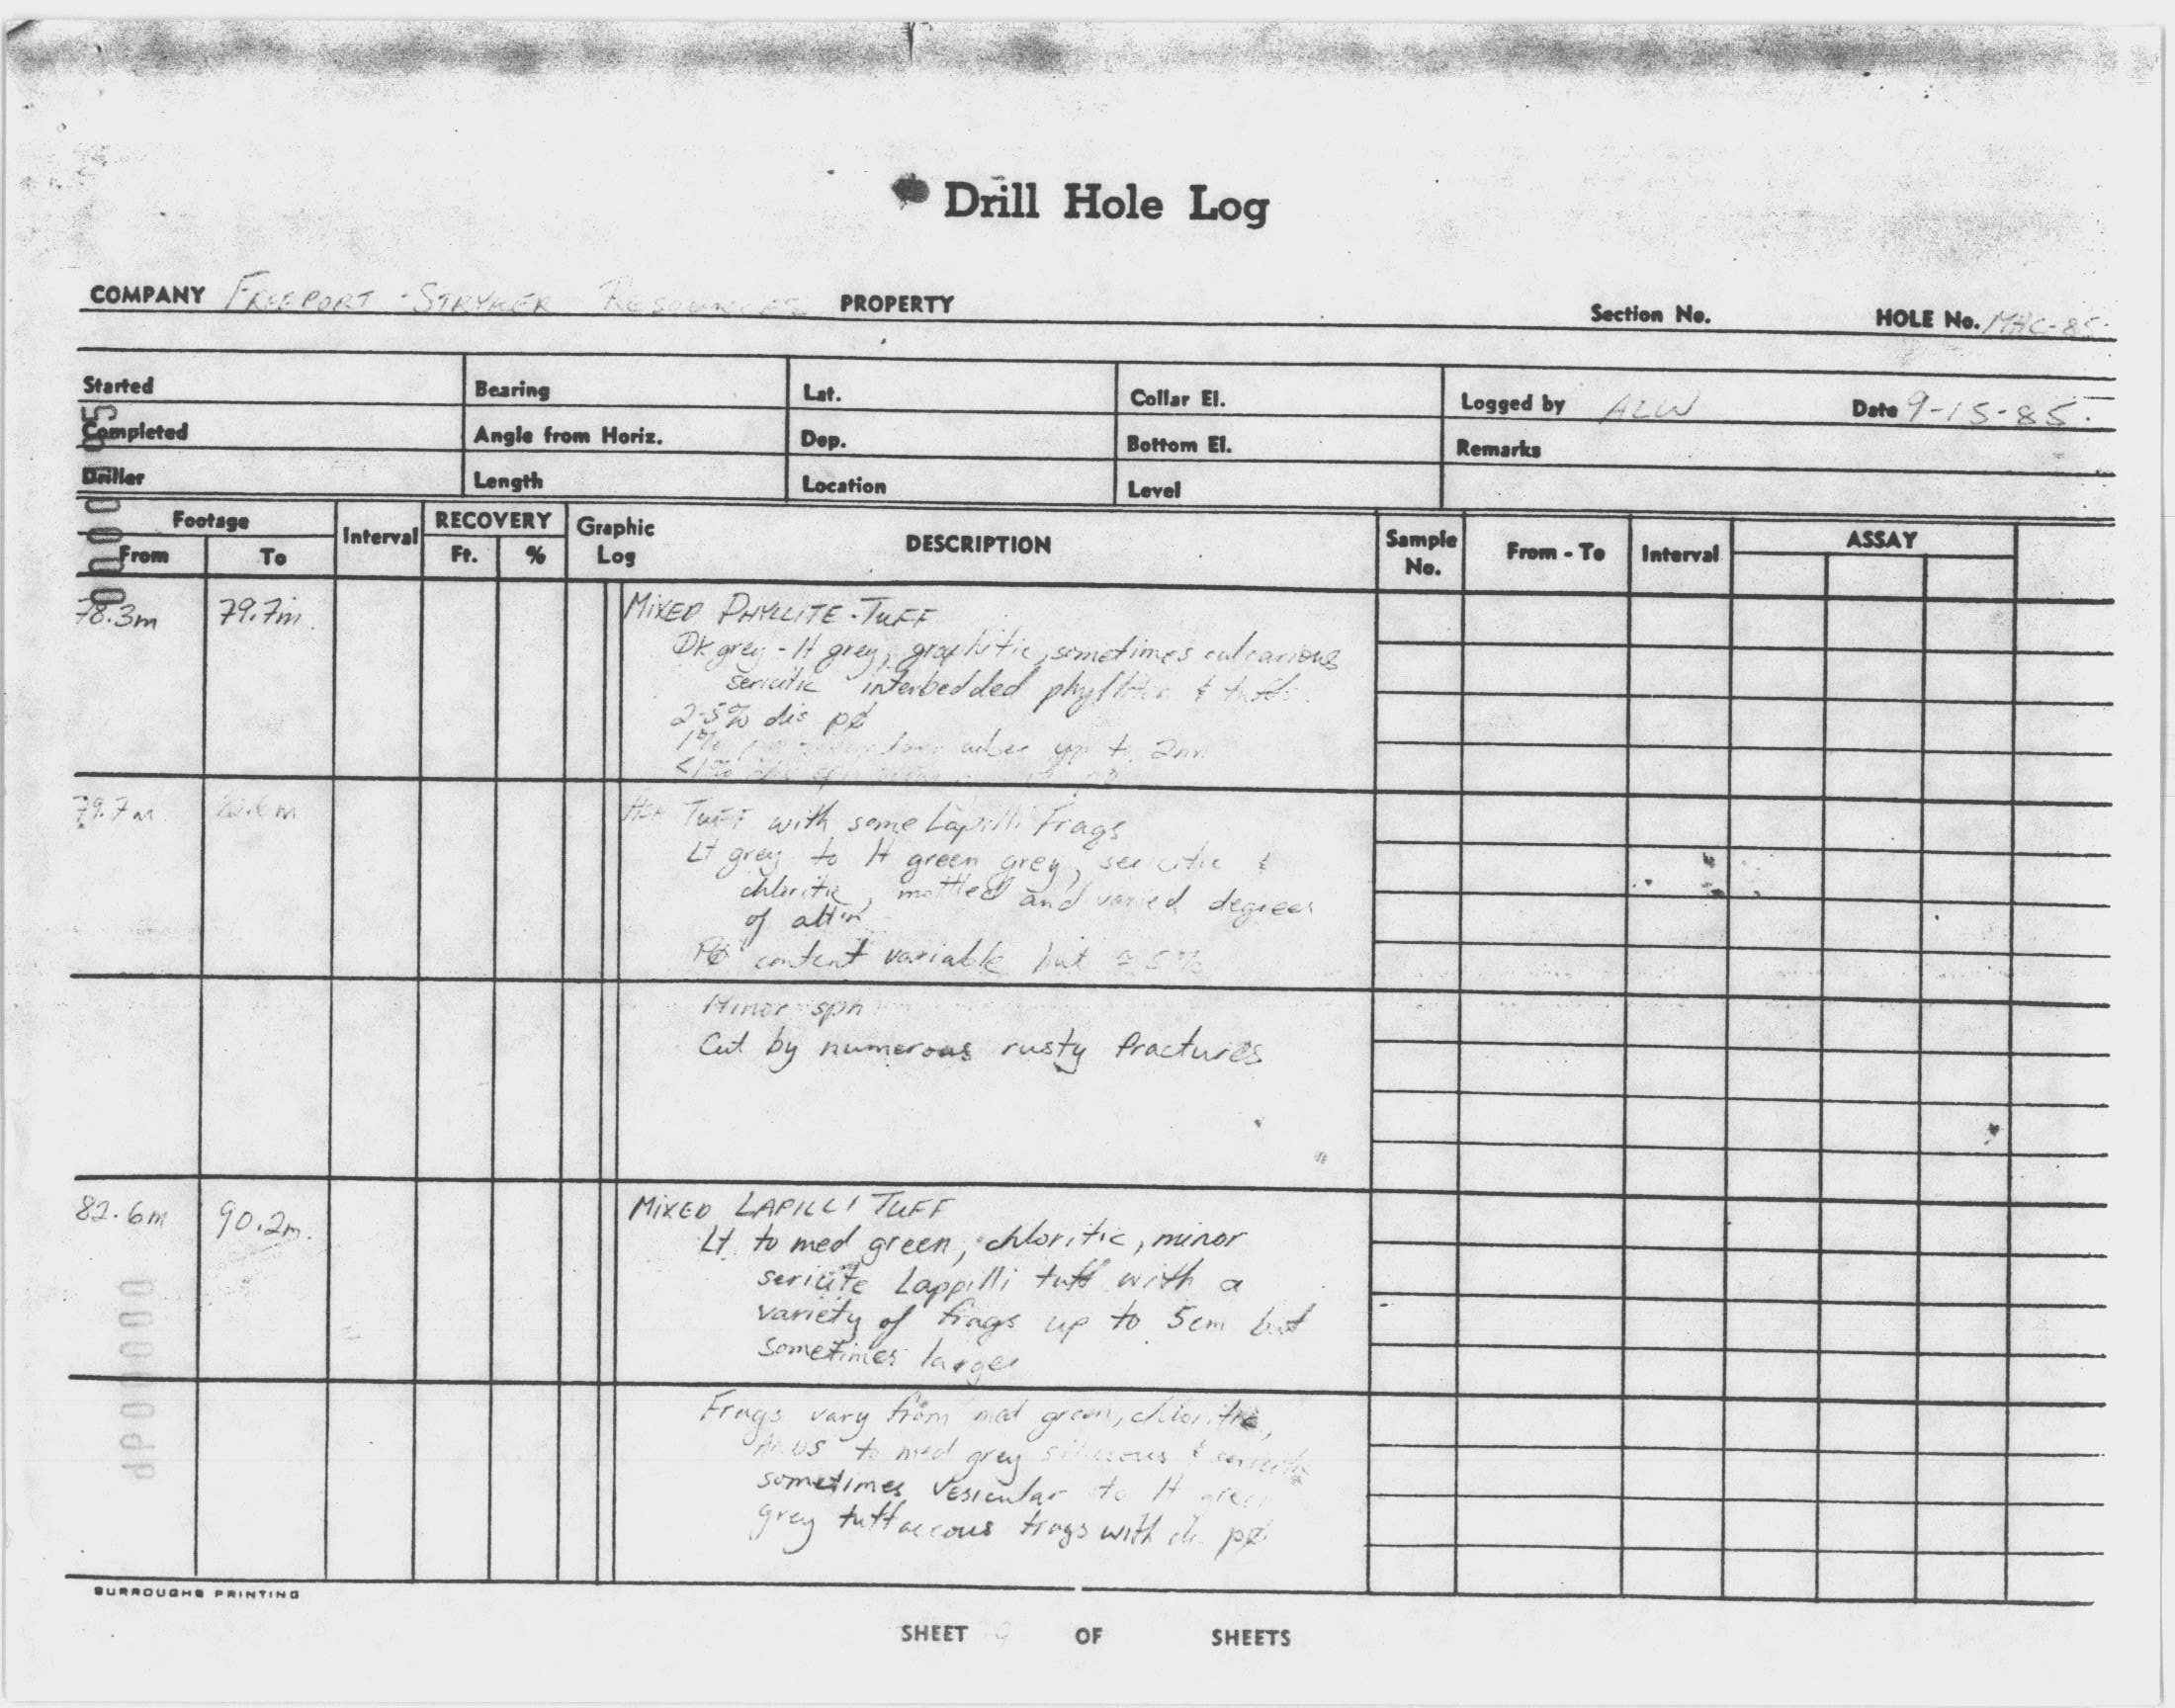 Drill Hole Log
COMPANY FREEPORT - STRYKER RESOURCES PROPERTY Section No. HOLE No. MAC-85-
Started Bearing Lat. Collar El. Logged by ALW Date 9-15-85
Completed Angle from Horiz. Dep. Bottom El. Remarks
Driller Length Location Level
Footage Interval RECOVERY Graphic Log DESCRIPTION Sample No. From - To Interval ASSAY
From To Ft. %
78.3m 79.7m MIXED PHYLLITE-TUFF
Dk grey - lt grey, graphitic, sometimes calcarious
sericitic interbedded phyllites & tuffs.
2-5% dis pø
1% up to 2mm
<1%
79.7m 82.6m ASH TUFF with some Lapilli Frags
Lt grey to lt green grey, sericitic &
chloritic, mottled and varied degrees
of alt'n
Pø content variable but ≈ 5%
Minor sph
Cut by numerous rusty fractures
82.6m 90.2m MIXED LAPILLI TUFF
Lt. to med green, chloritic, minor
sericite Lappilli tuff with a
variety of frags up to 5cm but
sometimes larger
Frags vary from med green, chloritic,
to med grey siliceous & sericitic
sometimes vesicular to lt green
grey tuffaceous frags with pø
BURROUGHS PRINTING
SHEET OF SHEETS